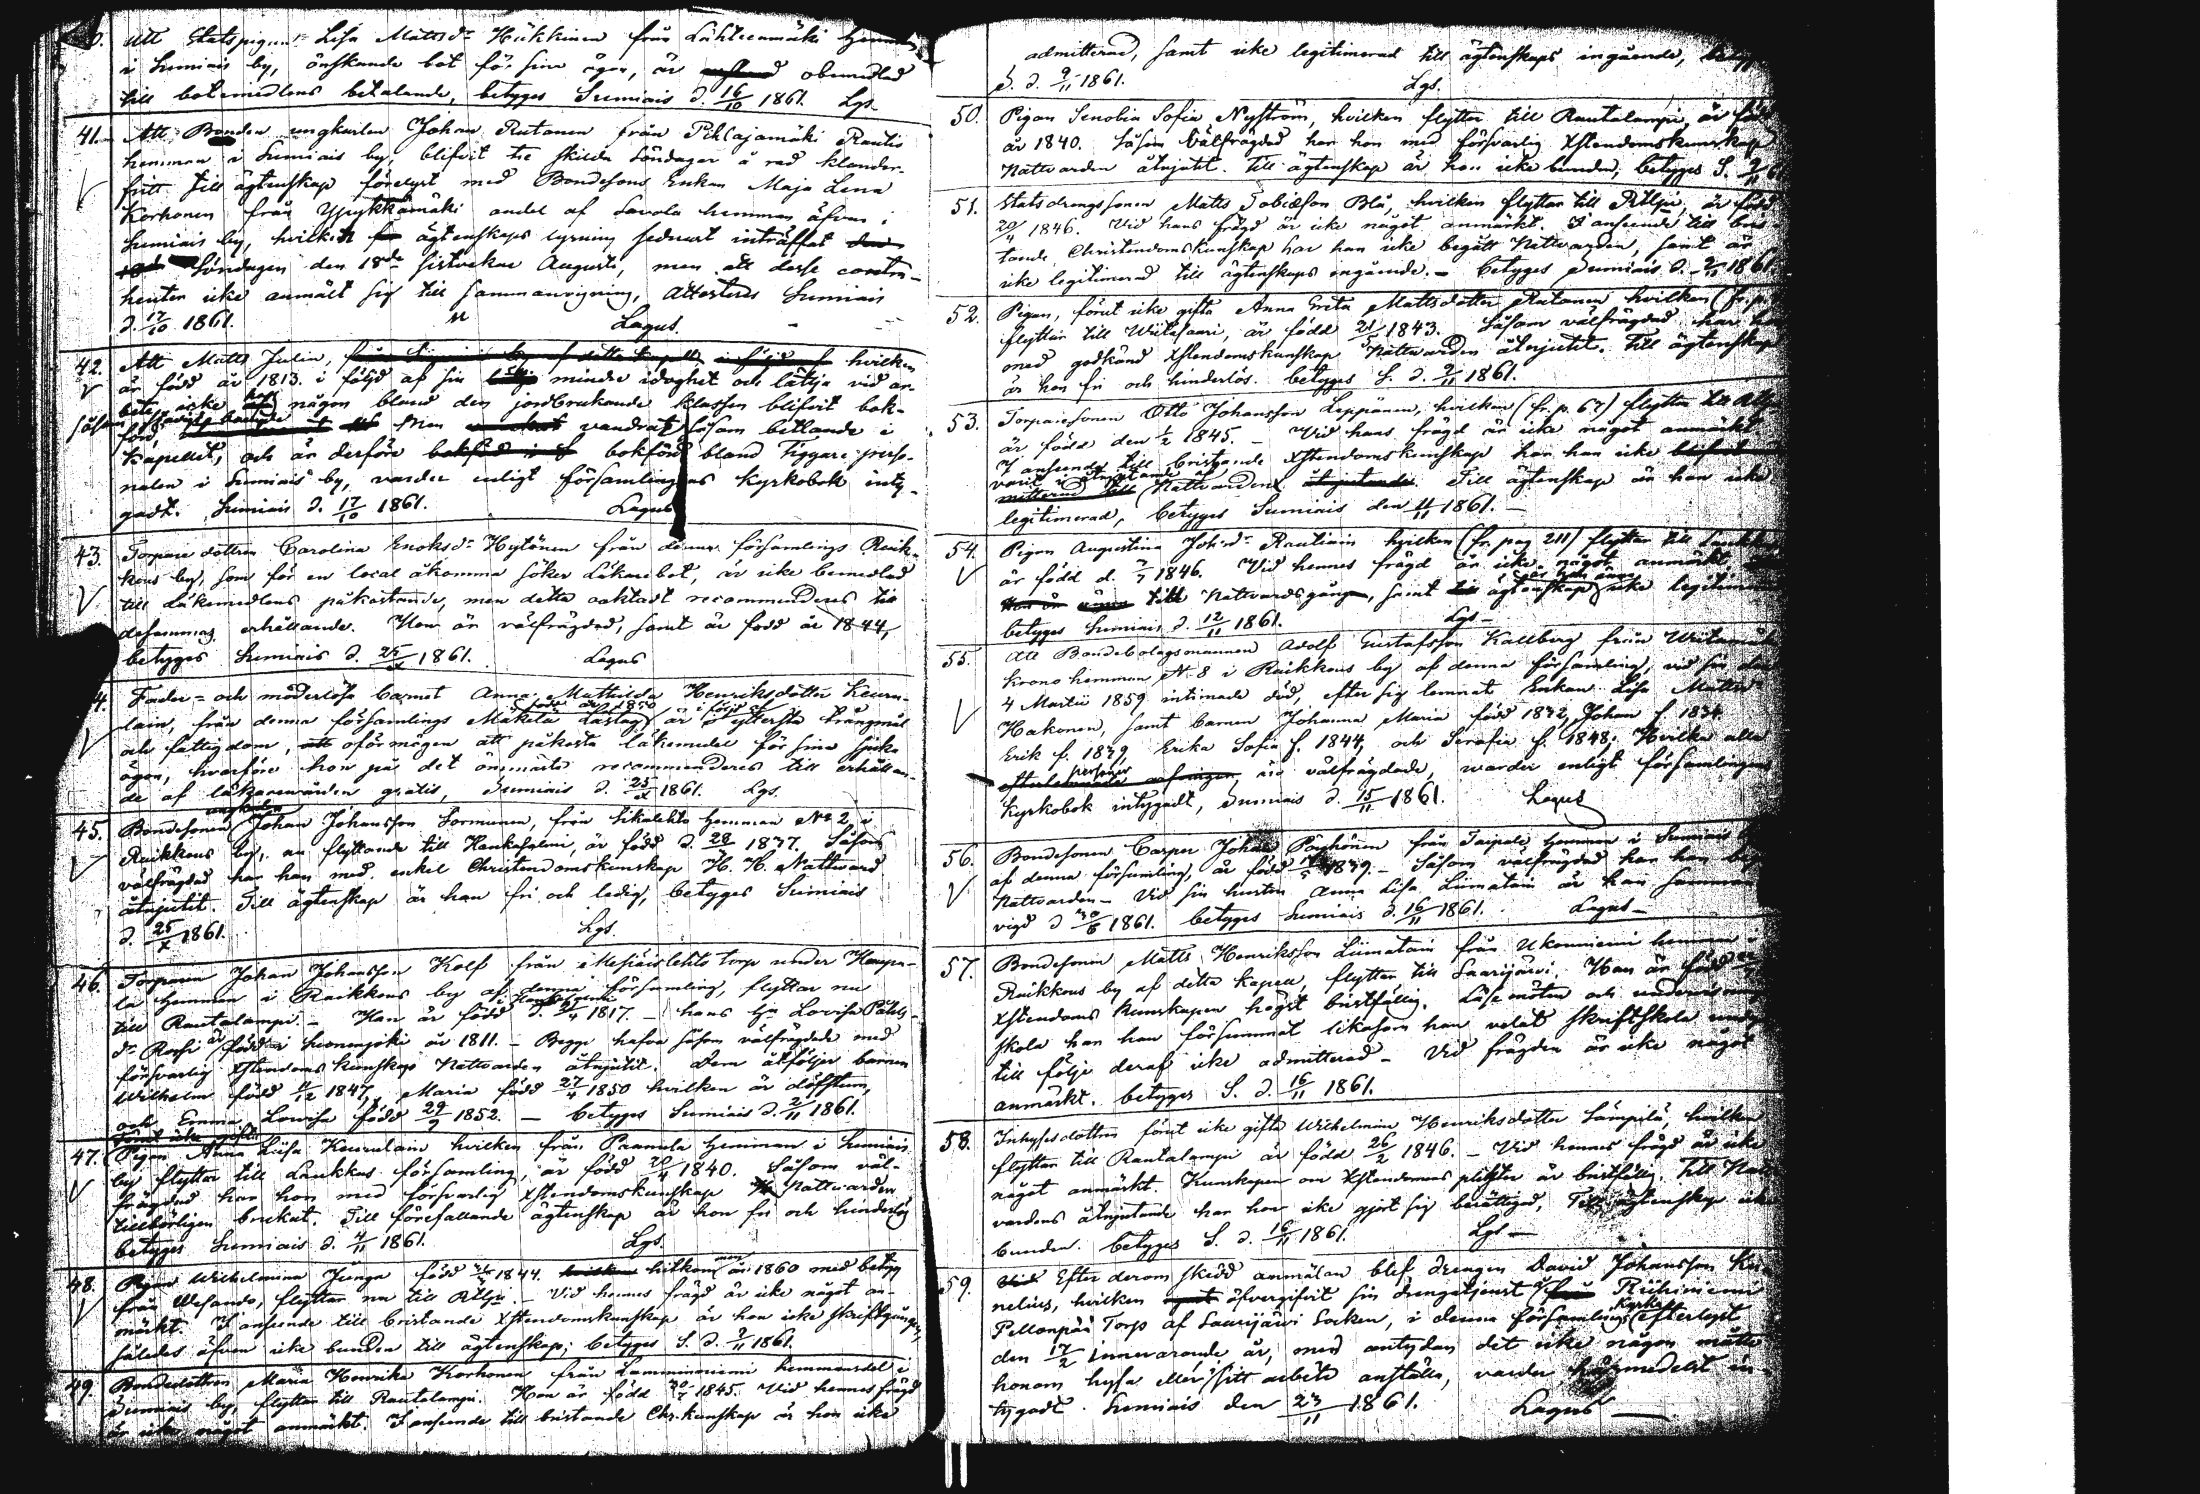 0. Att Statspigan Lisa Mattsdr Häkkinen från Lähteenmäki hemman
i Sumiais by, önskande bot för sina ögon, är obemedlad
till botemedlens betalande, betyges Sumiais d. 16/10 1861. Lgs.
41. Att Bonden ungkarlen Johan Rutanen från Pihlajamäki Rautis
hemman i Sumiais by, blifvit tre skilda Söndagar å rad klander-
fritt till ägtenskap förelyst med Bondesons Enkan Maja Lena
Korhonen från Ypykkämäki andel af Savola hemman äfven i
Sumiais by, hvilken ägtenskaps lysning sednast inträffat
Söndagen den 18de sistvekne Augusti, men att desse contra-
henter icke anmält sig till sammanvigning, attesteras Sumiais
d. 17/10 1861. Lagus.
42. Att Matts Julin, hvilken
är född år 1813. i följd af sin mindre idoghet och lättja vid ar-
bete, icke någon bland den jordbrukande klassen blifvit bok-
förd, Men vandrat såsom betlande i
Kapellet, och är derföre bokförd bland Tiggare perso-
nalen i Sumiais by, varder enligt församlingens Kyrkobok inty-
gadt. Sumiais d. 17/10 1861. Lagus
43. Torpare dottren Carolina Enoksdr Hytönen från denna församlings Ruik-
kous by, som för en local åkomma söker Läkarebot, är icke bemedlad
till Läkemedlens påkostande, men detta oaktadt recommenderas till
desammas erhållande. Hon är välfrägdad, samt är född år 1844,
betyges Sumiais d. 25/X 1861. Lagus
4. Fader- och moderlösa barnet Anna Mathilda Henriksdotter Keura-
född år 1850 i följd af
lain, från denna församlings Mäkilä Lästag är yttersta trångmål
och fattigdom, oförmögen att påkosta läkemedel för sina sjuka
ögon, hvarföre hon på det ömmaste recommenderas till erhållan-
de af läkarevården gratis, Sumiais d. 25/X 1861. Lgs.
ungkarlen
45. Bondesonen Johan Johansson Sormunen, från Sikalehto Hemman No 2 i
Ruikkous by, nu flyttande till Hankasalmi, är född d. 28/ 1837. Såsom
välfrägdad har han med enkel Christendomskunskap H. H. Nattvard
åtnjutit. Till ägtenskap är han fri och ledig, betyges Sumiais
d. 25/X 1861. Lgs.
46. Torparen Johan Johansson Kolf från torp under Kaupa-
la Hemman i Ruikkous by af denna församling, flyttar nu
till Rautalampi. - Han är född d. 1817. - hans Lovisa
dr Rossi är född i år 1811. - Begge hafva såsom välfrägdade med
försvarlig Xstendoms kunskap Nattvarden åtnjutit. Dem åtföljer barnen
Wilhelm född 1847, Maria född 27/4 1850 hvilken är döfstum,
och Emma Lovisa född 29/9 1852. - betyges Sumiais d. 2/11 1861.
förut icke gifta
47. Pigan Anna Lisa Keuralain hvilken från Paanala Hemman i Sumiais
by flyttar till Laukkas församling, är född 20/4 1840. Såsom väl-
frägdad har hon med försvarlig Xstendomskunskap Nattvarden
tillbörligen brukat. Till förefallande ägtenskap är hon fri och hinderlös
betyges Sumiais d. 4/11 1861. Lgs.
48. Pigan Wilhelmina Junga född 1844. hitkom år 1860 med betyg
från Wesando, flyttar nu till Rtlpi. - Vid hennes frägd är icke något an-
märkt. I anseende till bristande Xstendomskunskap är hon icke skriftgången,
således äfven icke bunden till ägtenskap; betyges S. d. 9/11 1861.
49. Bondedottren Maria Henrika Korhonen från Lamminniemi hemmansdel i
Sumiais by, flyttar till Rautalampi. Hon är född 1845. Vid hennes frägd
är icke något anmärkt. I anseende till bristande Chr.kunskap är hon icke
admitterad, samt icke legitimerad till ägtenskaps ingående,
S. d. 9/11 1861. Lgs.
50. Pigan Senobia Sofia Nyström, hvilken flyttar till Rautalampi, är född
år 1840. Såsom välfrägdad har hon med försvarlig Xstendomskunskap
Nattvarden åtnjutit. Till ägtenskap är hon icke bunden, betyges S. 9/11 61
51. Statsdrengssonen Matts Tobiasson Blå, hvilken flyttar till Rtlpi, är född
20/4 1846. Vid hans frägd är icke något anmärkt. I anseende till bris-
tande Christendomskunskap har han icke begått Nattvarden, samt är
icke legitimerad till ägtenskaps ingående. - betyges Sumiais d. 1861.
52. Pigan, förut icke gifta Anna Greta Mattsdotter Rutanen hvilken (fr. p.
flyttar till Wiitasaari, är född 21/ 1843. Såsom välfrägdad har hon
med godkänd Xstendomskunskap Nattvarden åtnjutit. Till ägtenskap
är hon fri och hinderlös. betyges S. d. 9/11 1861.
53. Torparesonen Otto Johansson Leppänen, hvilken (fr. p. 67) flyttar till
är född den 1/2 1845. - Vid hans frägd är icke något anmärkt.
I anseende till bristande Xstendomskunskap har han icke
varit i åtnjutande af Nattvarden. Till ägtenskap är han icke
legitimerad, betyges Sumiais den 11/11 1861. -
54. Pigan Augustina Joh:dr Rautiain hvilken (fr. pag 211) flyttar till Laukk
är född d. 7/7 1846. Vid hennes frägd är icke något anmärkt,
till Nattvardsgång, samt ägtenskap icke legitimerad
betyges Sumiais d. 12/11 1861. Lgs -
55. Att Bondebolagsmannen Adolf Gustafsson Kallberg från
Krono hemman No 8 i Ruikkous by af denna församling, vid sin den
4 Martii 1859 intimade död, efter sig lemnat Enkan Lisa Mattsdr
Hakonen, samt barnen Johanna Maria född 1832, Johan f. 1834.
Erik f. 1839, Erika Sofia f. 1844, och Serafia f. 1848; Hvilka alla
personer
äro välfrägdade, warder enligt församlingens
Kyrkobok intygadt, Sumiais d. 15/11 1861. Lagus
56. Bondesonen Casper Johan Pöyhönen från Taipale Hemman i Sumiais by
af denna församling, är född 1839. - Såsom välfrägdad har han beg
Nattvarden - Vid sin hustru Anna Lisa Liimatain är han samman
vigd d 30/6 1861. betyges Sumiais d. 16/11 1861. Lagus -
57. Bondesonen Matts Henriksson Liimatain från Ukonniemi hemman i
Ruikkous by af detta Kapell, flyttar till Saarijärvi. Han är född
Xstendoms Kunskapen högst bristfällig. Läsemöten och undervisnings
skola har han försummat likasom han velat skriftskola undg
till följe deraf icke admitterad - Vid frägden är icke något
anmärkt. betyges S. d. 16/11 1861.
58. Inhysesdottren förut icke gifta Wilhelmina Henriksdotter Lämpilä, hvilken
flyttar till Rautalampi är född 26/2 1846. - Vid hennes frägd är icke
något anmärkt. Kunskapen om Xstendomens plikter är bristfällig. Till Natt
vardens åtnjutande har hon icke gjort sig berättigad, Till ägtenskap icke
bunden. betyges S. d. 16/11 1861. Lgs -
59. Efter derom skedd anmälan blef, drengen David Johansson Kor-
nelius, hvilken öfvergifvit sin drengetjenst å Riihiniemi
Kyrka
Pellonpää Torp af Saarijärvi Socken, i denna församlings efterlyst
den 17/2 innevarande år, med antydan det icke någon måtte
honom hysa eller i sitt arbete anställa, varder härmedelst in-
tygadt. Sumiais den 23/11 1861. Lagus